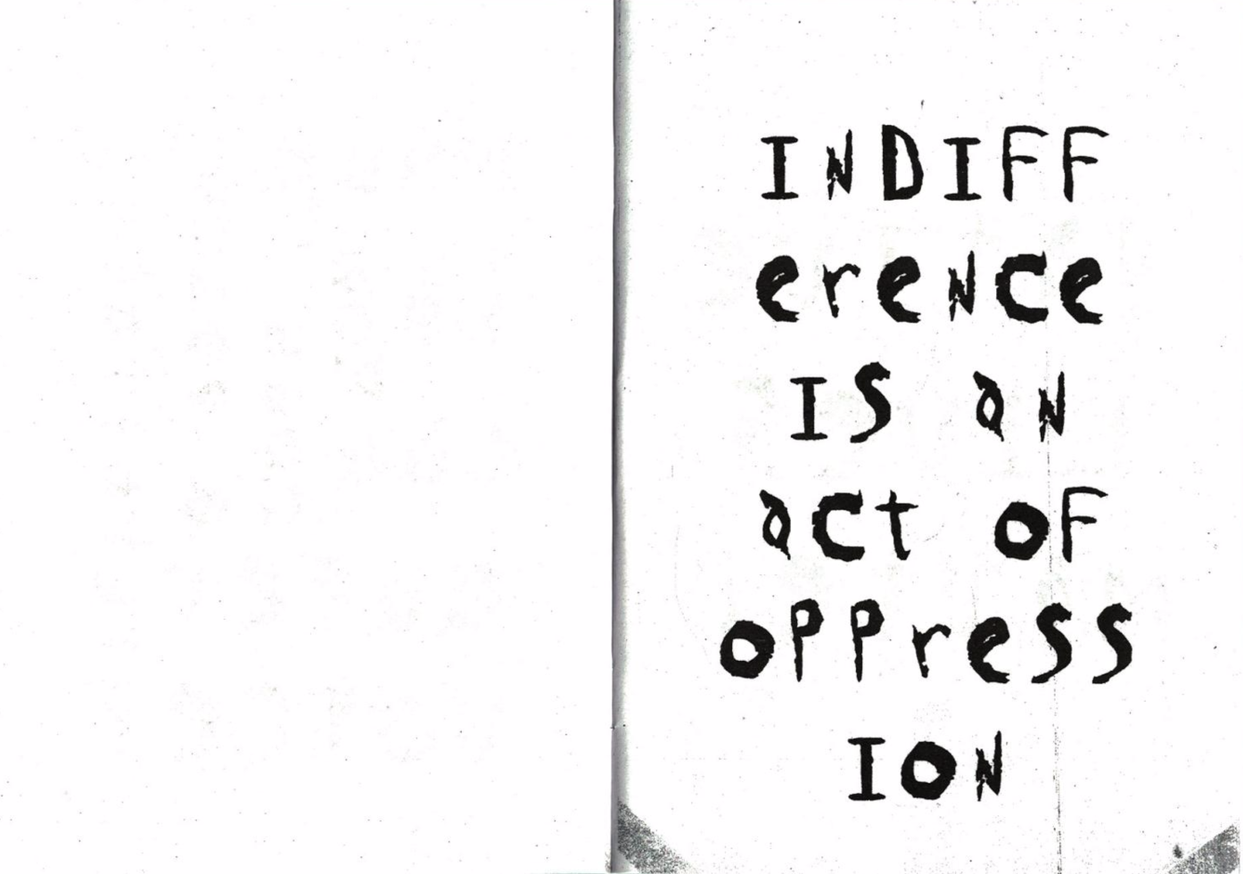 INDIFF
ereNce
IS aN
act oF
oPPreSS
IoN